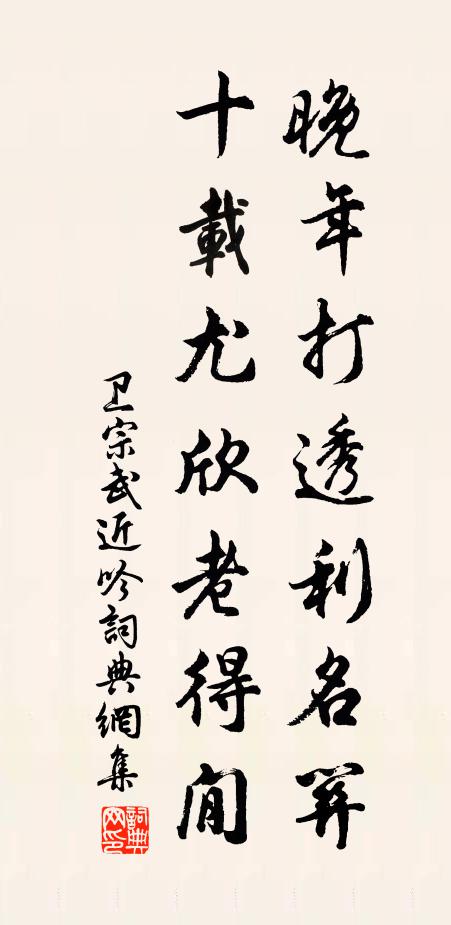 晚年打透利名關
十載尤欣老得閒
卫宗武近吟詞典網集
詞典網印